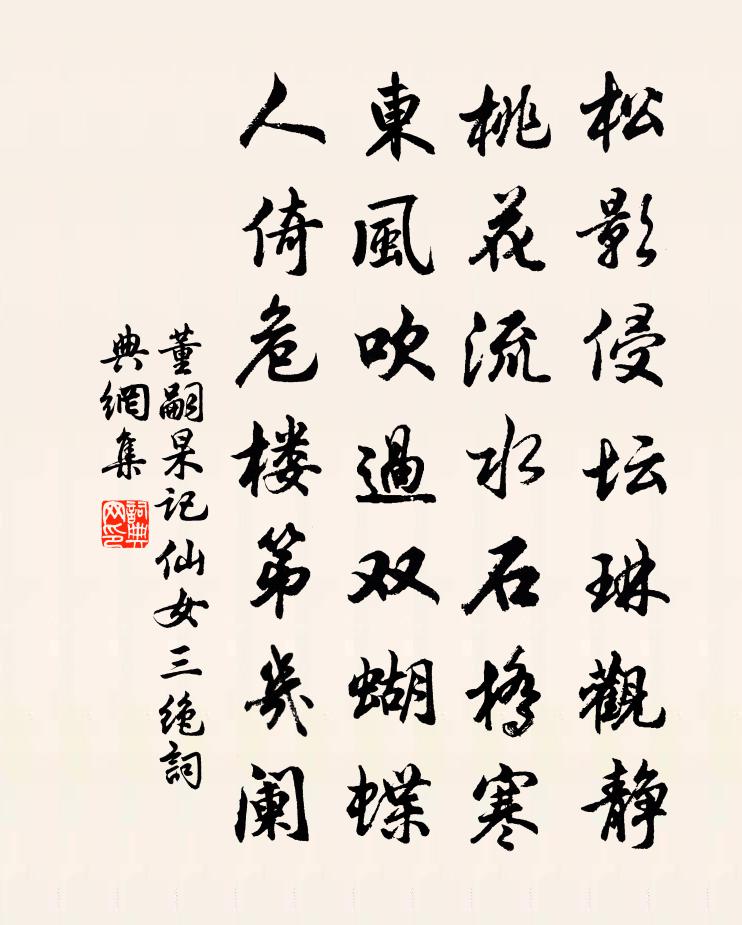 松影侵坛琳觀静
桃花流水石橋寒
東風吹過双蝴蝶
人倚危楼第幾阑
董嗣杲记仙女三绝詞
典網集
詞典
网印